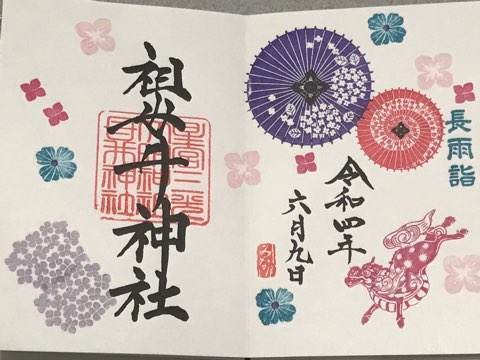 長雨詣
令和四年
六月九日
祖母井神社